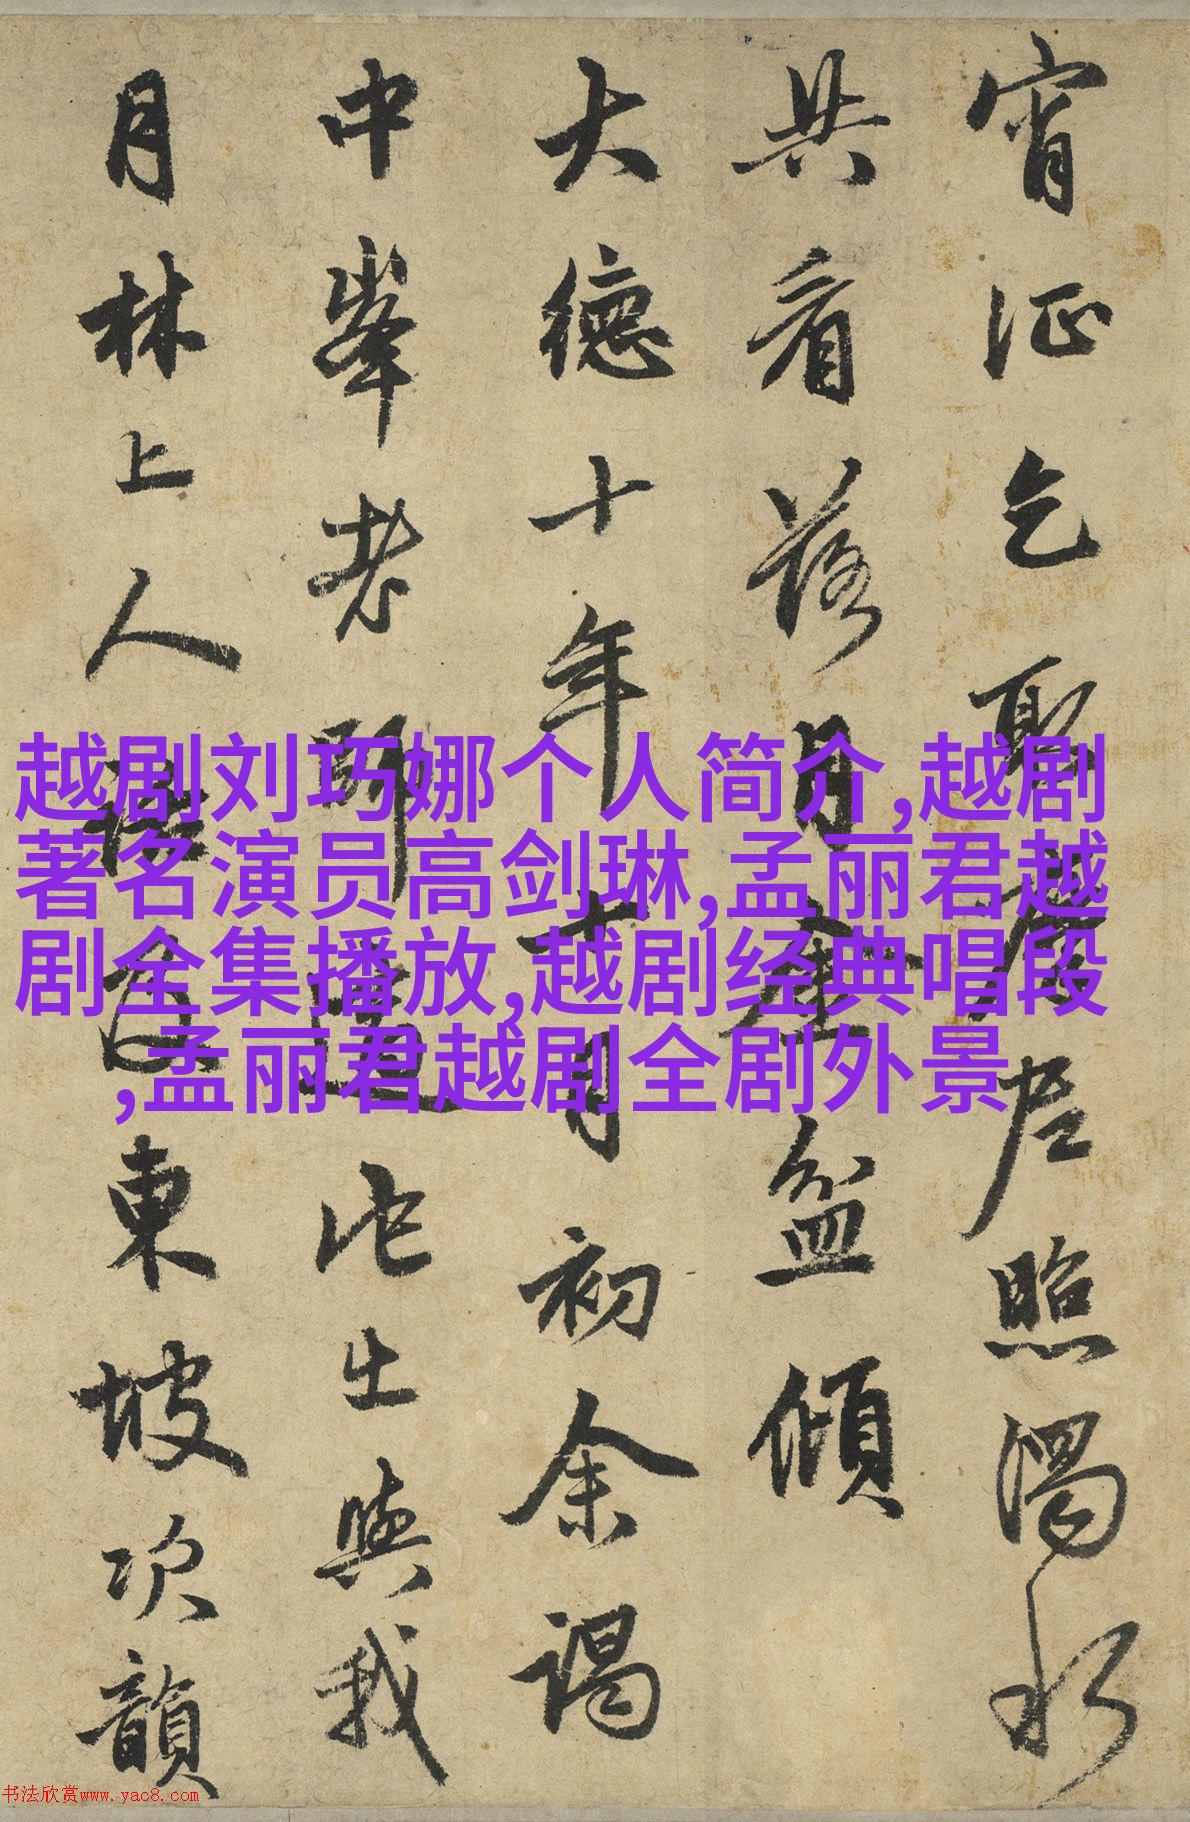 宵征乞取摩尼照濁水
共看落月金盆傾
大德十年十月初余謁
中峯老師他出與我
月林上人及東坡次韻
越剧刘巧娜个人简介,越剧
著名演员高剑琳,孟丽君越
剧全集播放,越剧经典唱段
,孟丽君越剧全剧外景
书法欣赏www.yac8.com